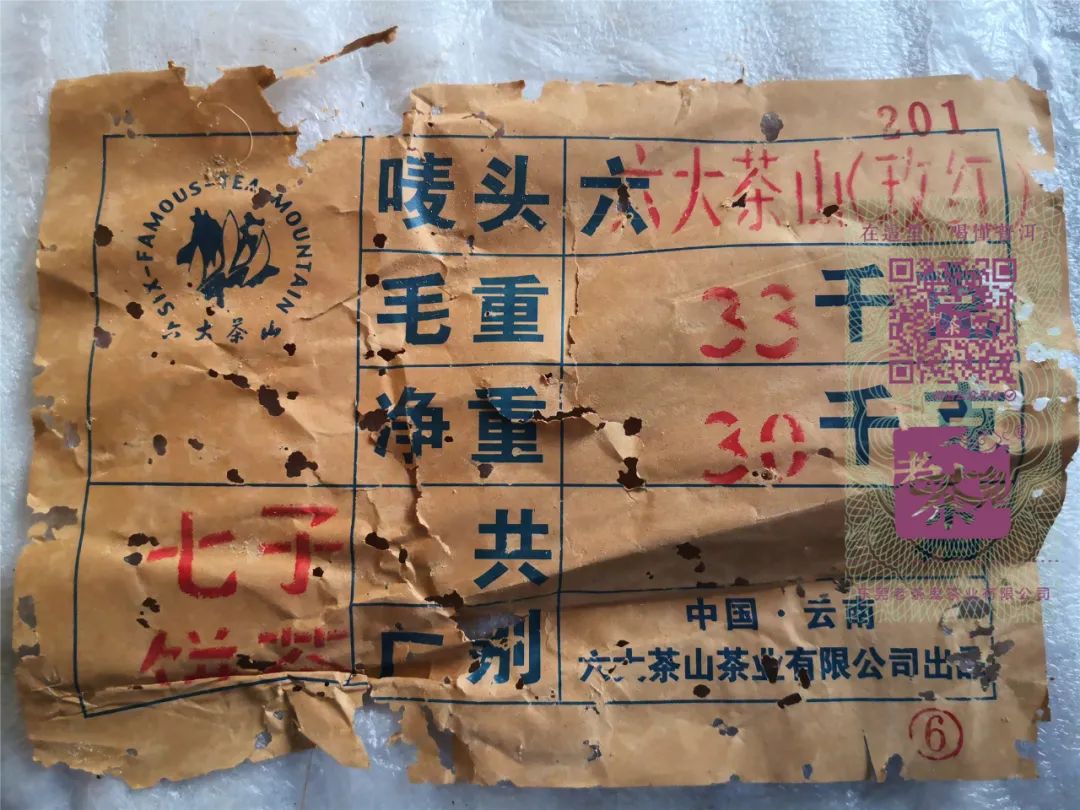 201
SIX-FAMOUS-TEA MOUNTAIN
六大茶山
唛头 六 六大茶山(玫红)
在這里 喝懂普洱
毛重 33 千克
净重 30 千克
老茶
七子
饼茶
共
厂别
中国·云南
六大茶山茶业有限公司出品
6